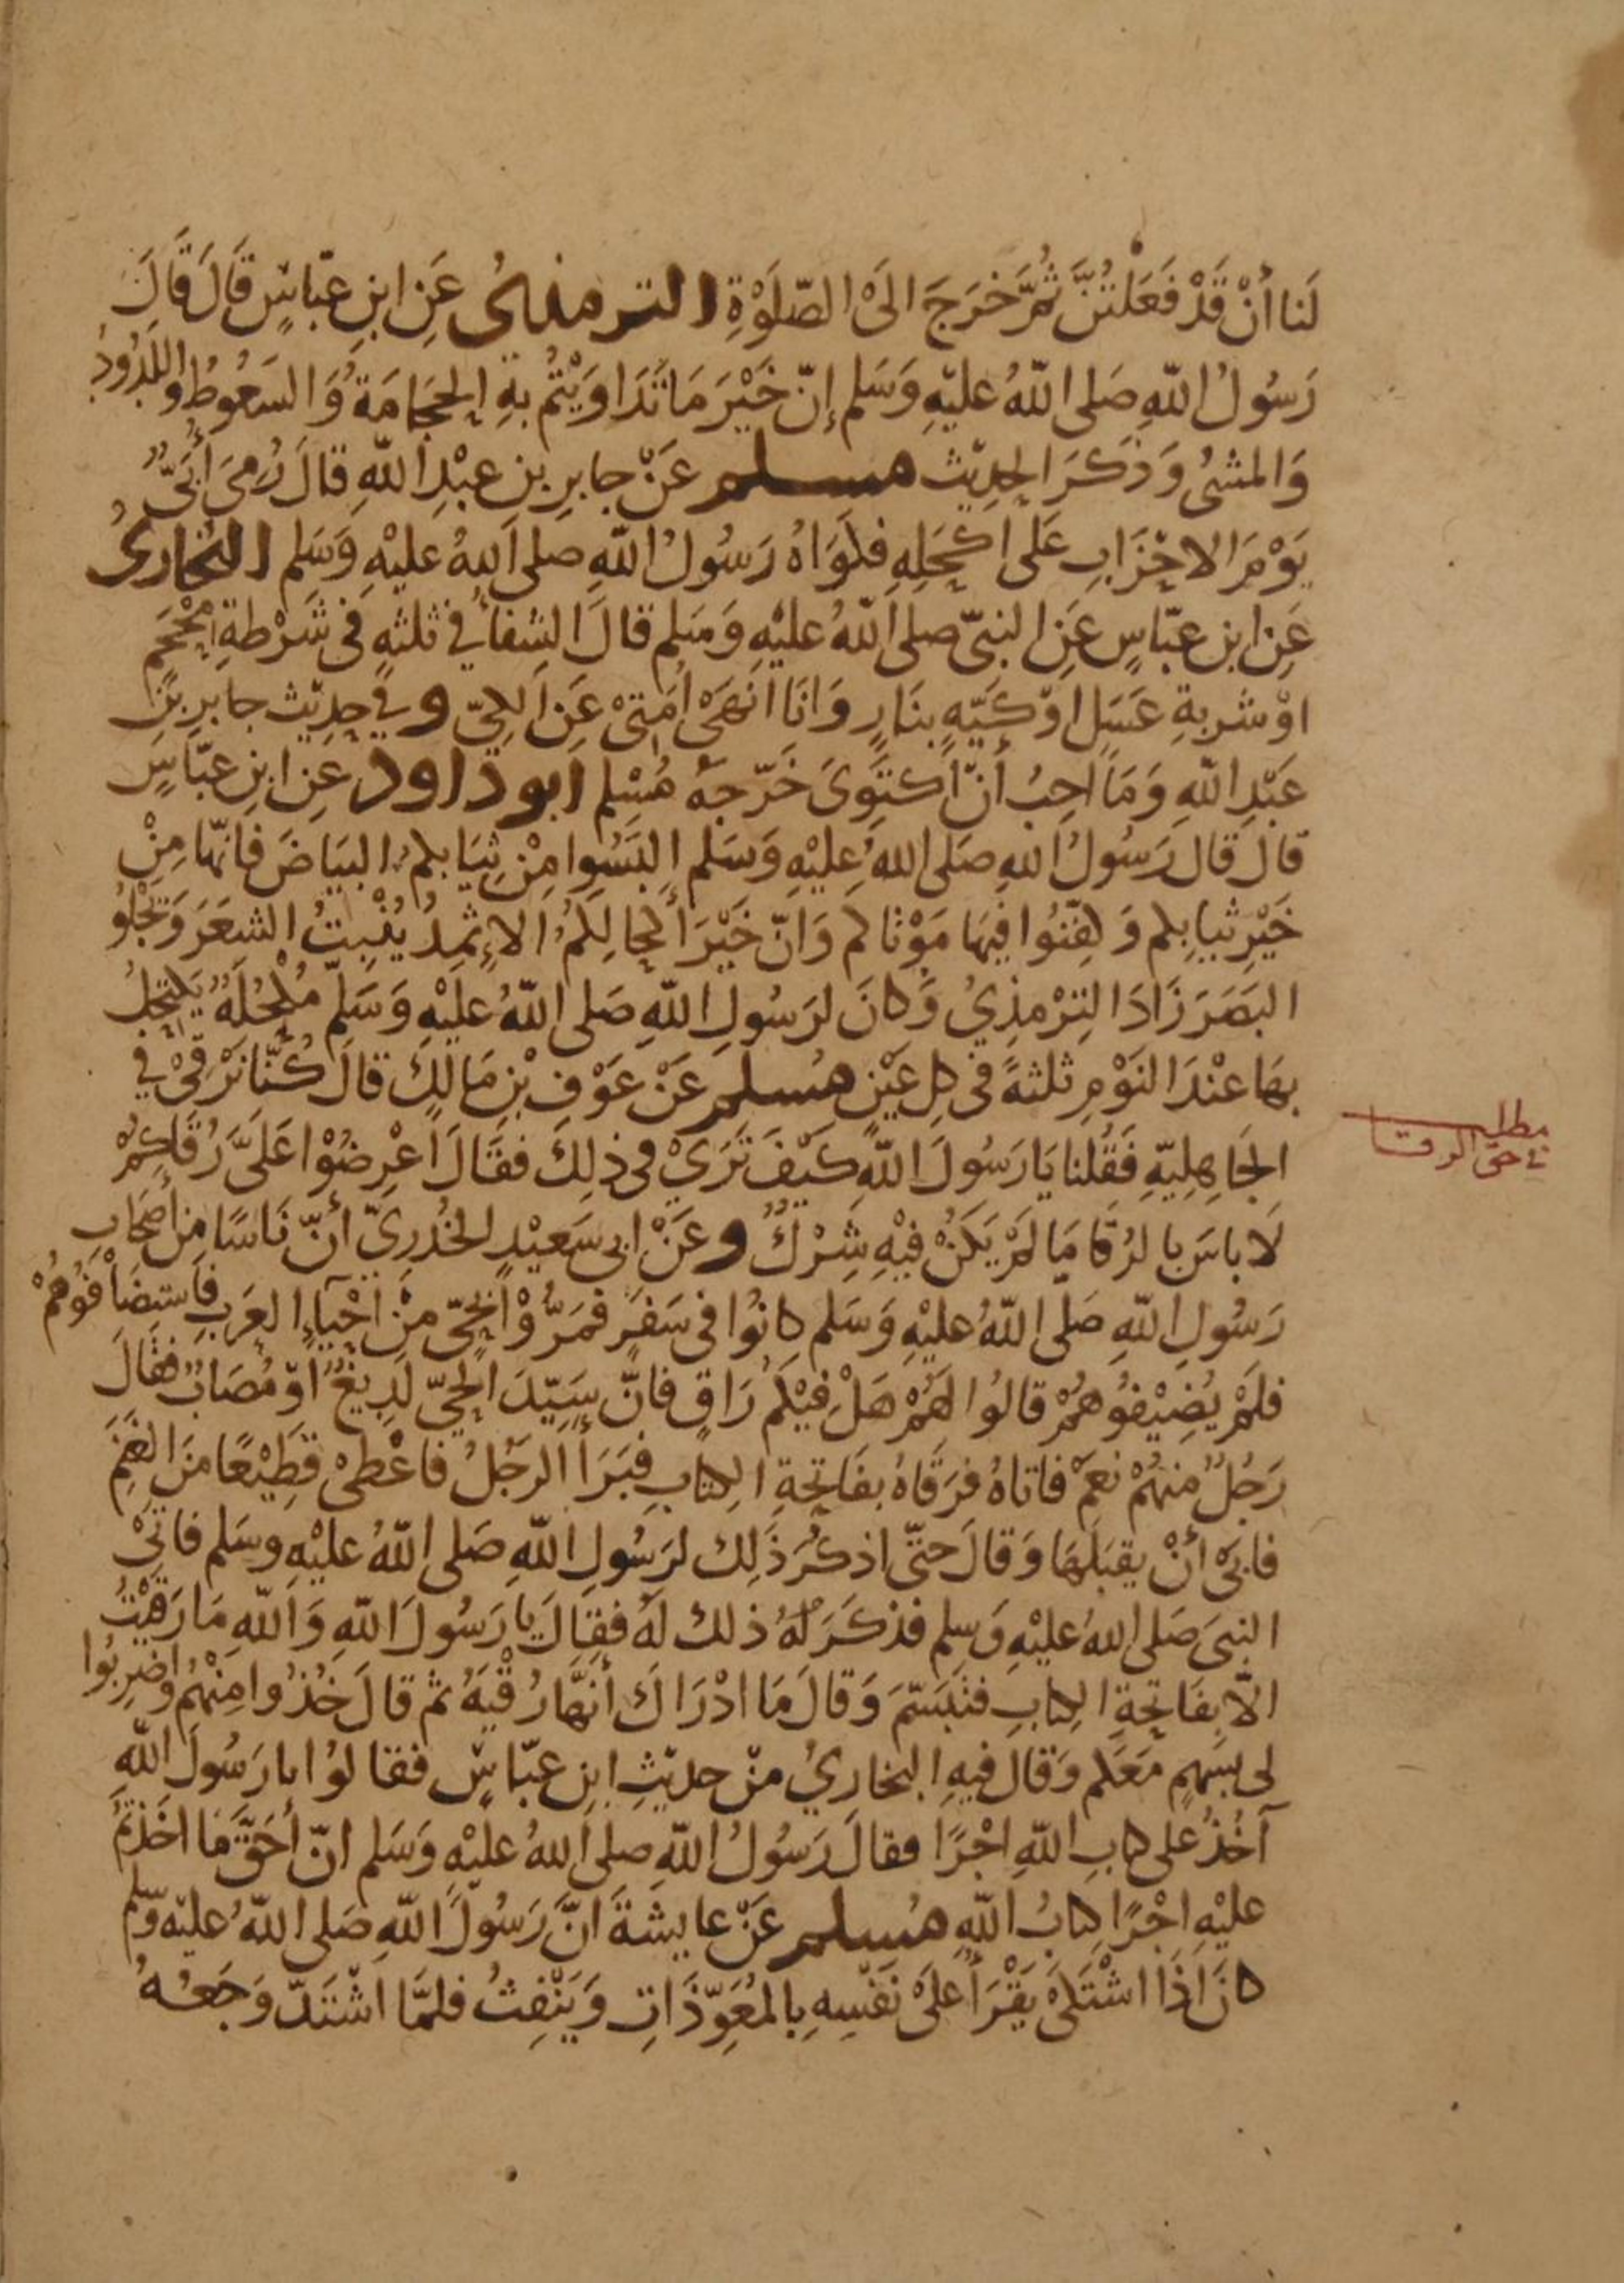 لَنا أَنْ قَدْ فَعَلْتُنَّ ثُمَّ خَرَجَ الَى الصَّلَوٰةِ الترمذىُ عَنِ ابنِ عبّاسٍ قَالَ قَالَ
رَسُولُ اللّهِ صَلى اللّهُ عليْهِ وَسَلم إنّ خَيْرَ مَا تَدَاوَيْتُمْ بهِ الحِجَامَةُ وَالسَعُوطُ وَاللَدُودُ
وَالمشىُ وَذكَرَ الحدِيْث مسلم عَنْ جابرِ بن عبْدِ اللّهِ قالَ رُمىَ أُبَىٌّ
يَوْمَ الاحْزَابِ عَلى اكحَلِهِ فكَوَاهُ رَسُولُ اللّهِ صلى اَللهُ عليْهِ وَسَلم البخارىُ
عَنِ ابن عبّاسٍ عَنِ النبىّ صلى اَللّهُ عليْهِ وَسَلم قالَ الشِفاُ في ثلثهٍ فى شَرْطةِ محْجَمٍ
اوْ شربةِ عَسَلٍ اوْ كَيّهٍ بنَارٍ وَانَا انَهَىْ امَتىْ عَنِ الكىّ وفي حدِيْث جابرِ بْنِ
عَبْدِ اللّهِ وَمَا احِبُ أَنْ اَكتَوِىَ خَرّجهُ مُسْلم ابو داود عَنِ ابنِ عبّاسٍ
قالَ قالَ رَسُولُ اللهِ صَلى اللهُ عليْهِ وَسَلم البَسُوا مِنْ ثِيَابكمُ البيَاضَ فانّهَا مِنْ
خَيْرِ ثيابِكم وَكفّنُوا فيهَا مَوْتَاكم وَانّ خَيْرَ أكحالِكمُ الاِثمِدُ يُنْبِتُ الشعَرَ وَيَجْلُوُ
البَصَرَ زَادَ التِرْمذِيُ وَكانَ لرَسُولِ اللّهِ صَلى اللّهُ عليْهِ وَسَلمّ مُكْحُلَهٌ يَكتحِلُ
بهَا عنْدَ النَوْمِ ثلثهً فى كلِ عَيْنٍ مُسلم عَنْ عَوْفِ بْنِ مَالكٍ قالَ كُنّا نَرْقىْ فى
الجَاهِلِيّهِ فَقُلنا يَا رَسُولَ اللّهِ كيْفَ تَرَىْ فى ذلِكَ فقَالَ اَعْرِضُوْا عَلَىَّ رُقَاكمُ
لَا باسَ با لرُقا مَا لَمْ يَكنْ فيْهِ شِرْكٌ وعَنْ ابى سَعيْدٍ الخُدْرِىّ أنّ نَاسًا مِن أصْحَاب
رَسُولِ اللّهِ صَلى اللّهُ عليْهِ وَسَلم كانُوُا فى سَفرٍ فمَرُّوْا بحَىّ مِنْ اَحْيَآءِ العَرَبِ فَاستضَافوُهُمْ
فلَمْ يُضِيْفوُهمُ قالوُا لهمْ هَلْ فيْكمُ رَاقٍ فانّ سَيّدَ الحىّ لَدِيغٌ اوْ مُصَابٌ فقَالَ
رَجُلٌ منهُمْ نعَمْ فاتاهُ فرَقاهُ بفَاتحةِ الكتابِ فبَرَأَ الرَجُلُ فاعْطىْ قطِيْعًا منَ الغنَمِ
فابىَ أنْ يقبلَهَا وَقالَ حتّى اذكُرَ ذَلِك لرَسُولِ اللّهِ صَلى اَللّهُ عليْهِ وسَلم فاتىْ
النبىَ صَلى اللهُ عليْهِ وَسلم فذكَرَ لهُ ذلك لهُ فقالَ يا رَسُولَ اللّهِ وَاَللّهِ مَا رَقيْتُ
الّا بفَاتحةِ الكِتابِ فتَبَسّمَ وَقالَ مَا ادْرَاكَ أنهَّا رُقْيَهُ ثم قالَ خُذُوا مِنْهُمُ وَاضربُوا
لى بسَهمٍ مَعَكم وَقالَ فيهِ البخارِيُ منْ حديْثِ ابنِ عبّاسٍ فقالوُا يا رَسُولَ اللّهِ
آخُذُ على كتابِ اللّهِ اجْرًا فقالَ رَسُولُ اللّهِ صلى اَللهُ عليْهِ وَسَلم انّ أَحَقَّ مَا اخَذتمُ
عليْهِ اجْرًا كتابُ اللّهِ مُسلم عَنْ عايشةَ انّ رَسُولَ اللّهِ صَلى اللّهُ عليْه وسّلم
كانَ اذَا اشْتَكىَ يَقْرَأُ عَلىْ نَفْسِهِ بالمعَوِّذَاتِ وَيَنْفِثُ فلمّا اَشْتَدّ وَجَعُهُ
مطلب
في حق الرقا